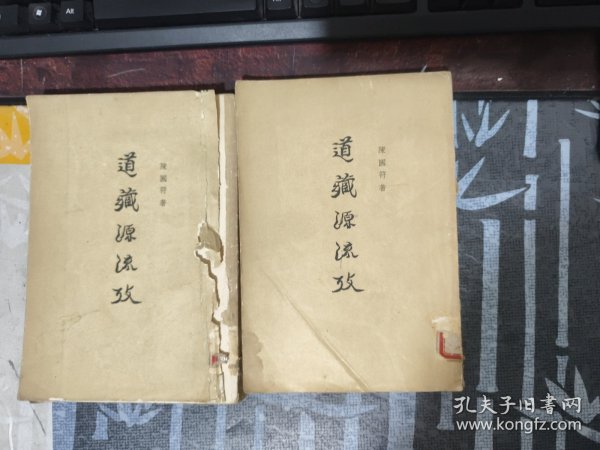 Alt
陳國符著
道藏源流攷
陳國符著
道藏源流攷
孔夫子旧書网
www.kongfz.com